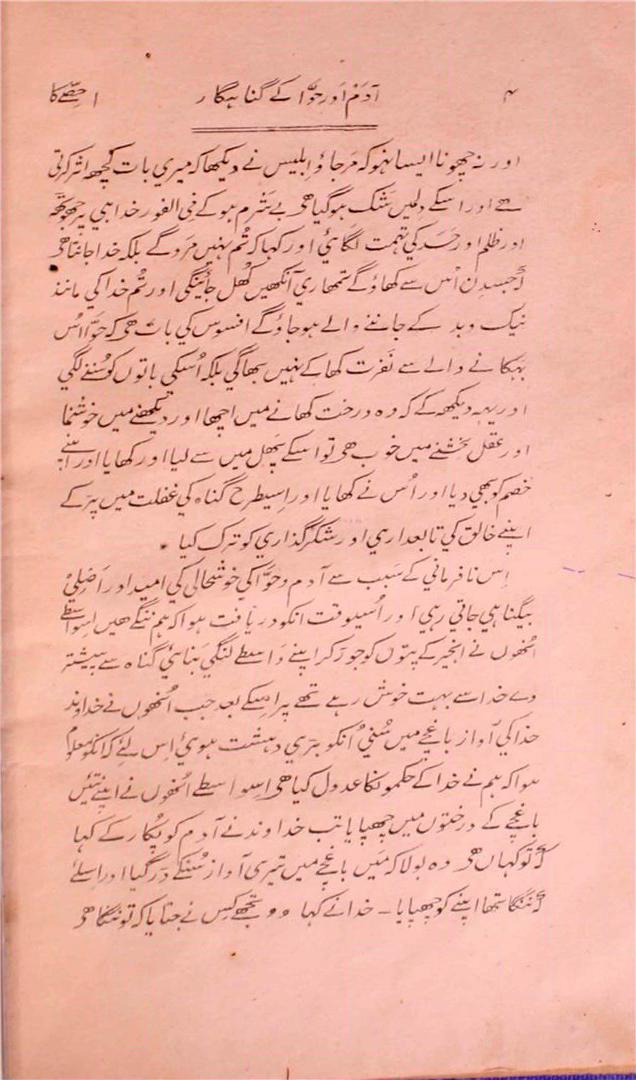 ۴ آدم اور حوّا کے گناہگار ا حصّے کا
اور نہ چھونا ایسا نہو کہ مرجاؤ ابلیس نے دیکھا کہ میری بات کچھ اثر کرتی
ہے اور اسکے دلمیں شک ہو گیا ہی بے شرم ہو کے فی الفور خدا ہی پر جھوٹھ
اور ظلم اور حسد کی تہمت لگائی اور کہا کہ تُم نہیں مروگے بلکہ خدا جانتا ہی
کہ جسدن اُس سے کھاؤگے تمھاری آنکھیں کُھل جائینگی اور تُم خدا کی مانند
نیک و بد کے جاننے والے ہو جاؤگے افسوس کی بات ہی کہ حوّا اُس
بہکانے والے سے نفرت کھا کے نہیں بھاگی بلکہ اُسکی باتوں کو سُننے لگی
اور یہہ دیکھہ کے کہ وہ درخت کھانے میں اچھا اور دیکھنے میں خوشنما
اور عقل بخشنے میں خوب ہی تو اسکے پھل میں سے لیا اور کھایا اور اپنے
خصم کو بھی دیا اور اُس نے کھایا اور اِسیطرح گناہ کی غفلت میں پڑ کے
اپنے خالق کی تابعداری اور شکر گذاری کو ترک کیا
اِس نافرمانی کے سبب سے آدم و حوّا کی خوشحالی کی امید اور اصلی
بیگناہی جاتی رہی اور اُسیوقت انکو دریافت ہوا کہ ہم ننگے ہیں اِسواسطے
اُنھوں نے انجیر کے پتوں کو جوڑ کر اپنے واسطے لنگی بنائی گناہ سے پیشتر
وے خدا سے بہت خوش رہے تھے پر اسکے بعد جب اُنھوں نے خداوند
خدا کی آواز باغچے میں سُنی اُنکو بڑی دہشت ہوئی اِس لئے کہ انکو معلوم
ہوا کہ ہم نے خدا کے حکم کا عدول کیا ہی اِسواسطے اُنھوں نے اپنے تئیں
باغچے کے درختوں میں چھپایا تب خداوند نے آدم کو پکار کے کہا
کہ تو کہاں ہی وہ بولا کہ مَیں باغچے میں تیری آواز سُنکے ڈر گیا اور اِسلئے
کہ ننگا تھا اپنے کو چھپایا - خدا نے کہا وو تجھے کِس نے جتایا کہ تو ننگا ہی